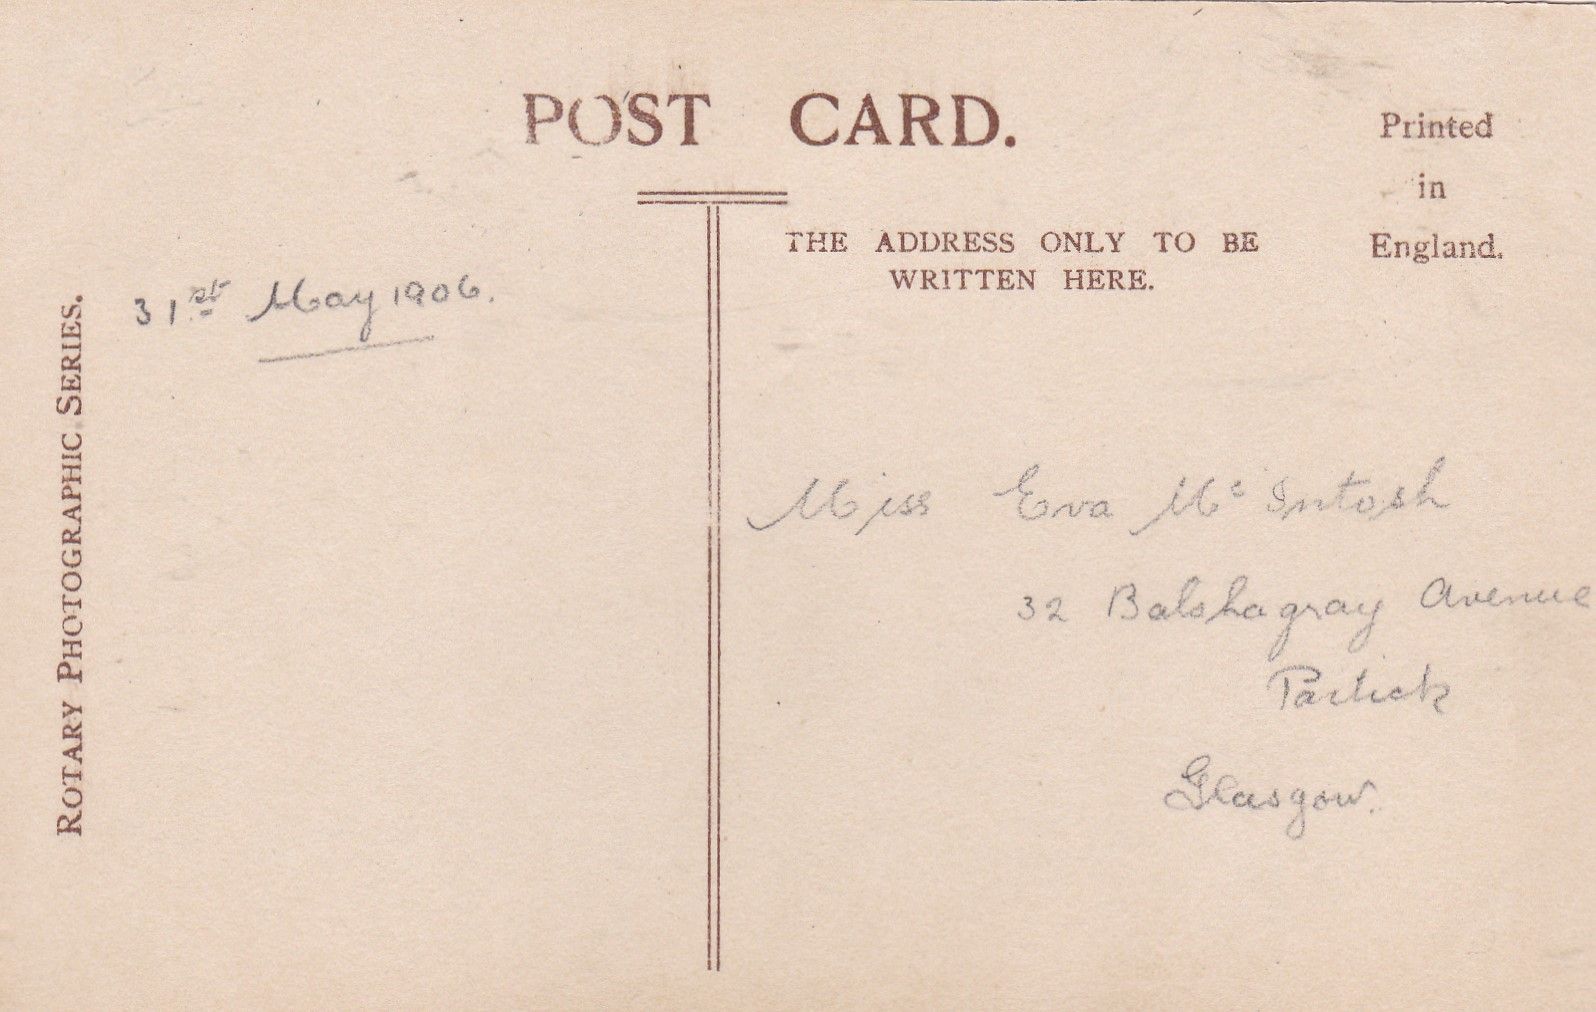 POST CARD.
Printed
in
England.
THE ADDRESS ONLY TO BE
WRITTEN HERE.
ROTARY PHOTOGRAPHIC SERIES.
31st May 1906.
Miss Eva Mc Intosh
32 Balshagray Avenue
Partick
Glasgow.